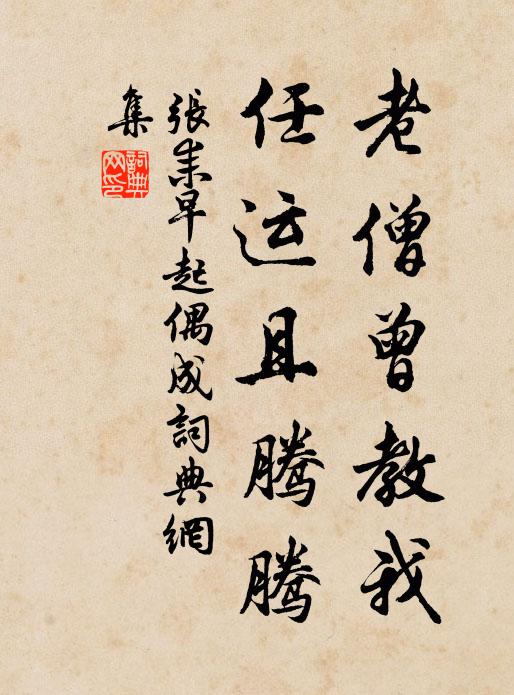 老僧曾教我
任运且腾腾
張耒早起偶成詞典網
集
詞典
网印